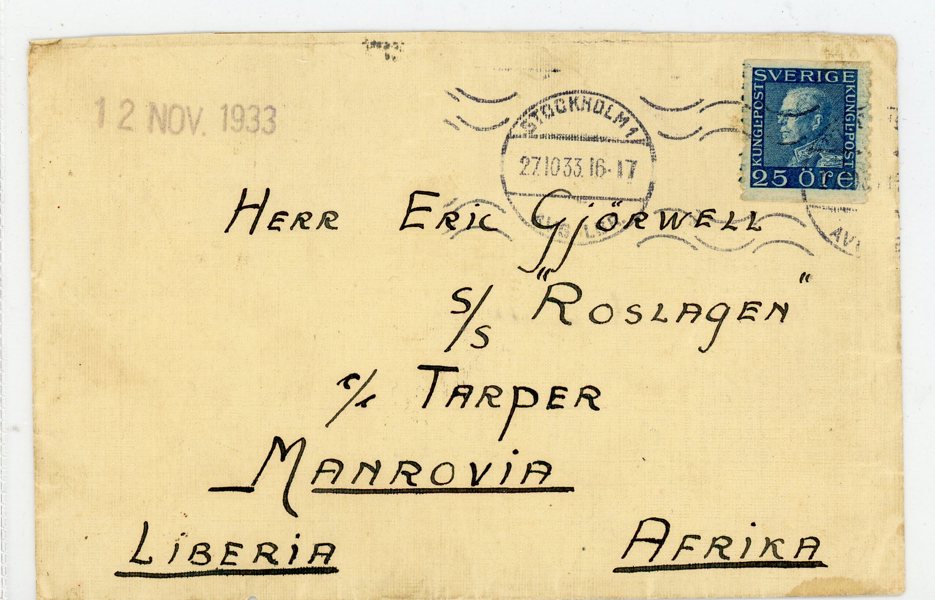 12 NOV. 1933
STOCKHOLM 1
27.10.33.16-17
SVERIGE
KUNGL·POST
KUNGL·POST
25 ÖRE
HERR ERIC GJÖRWELL
S/S "ROSLAGEN"
c/o TARPER
MANROVIA
LIBERIA AFRIKA